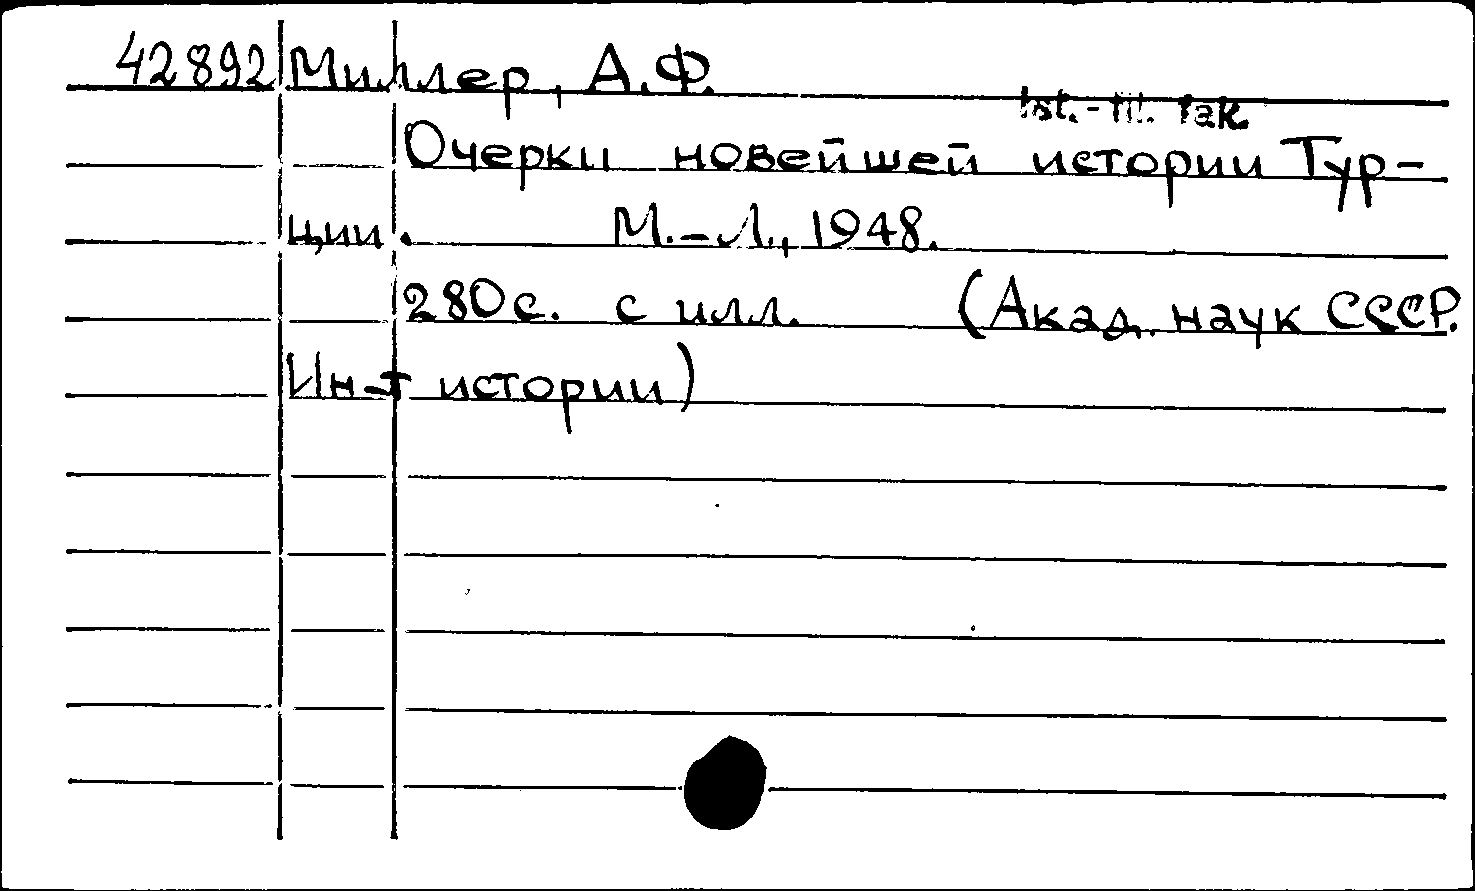 42892 Миллер, А.Ф.
Ist.-fil. fak.
Очерки новейшей истории Тур-
ции. М.-Л., 1948.
280с. с илл. (Акад. наук СССР.
Ин-т истории)